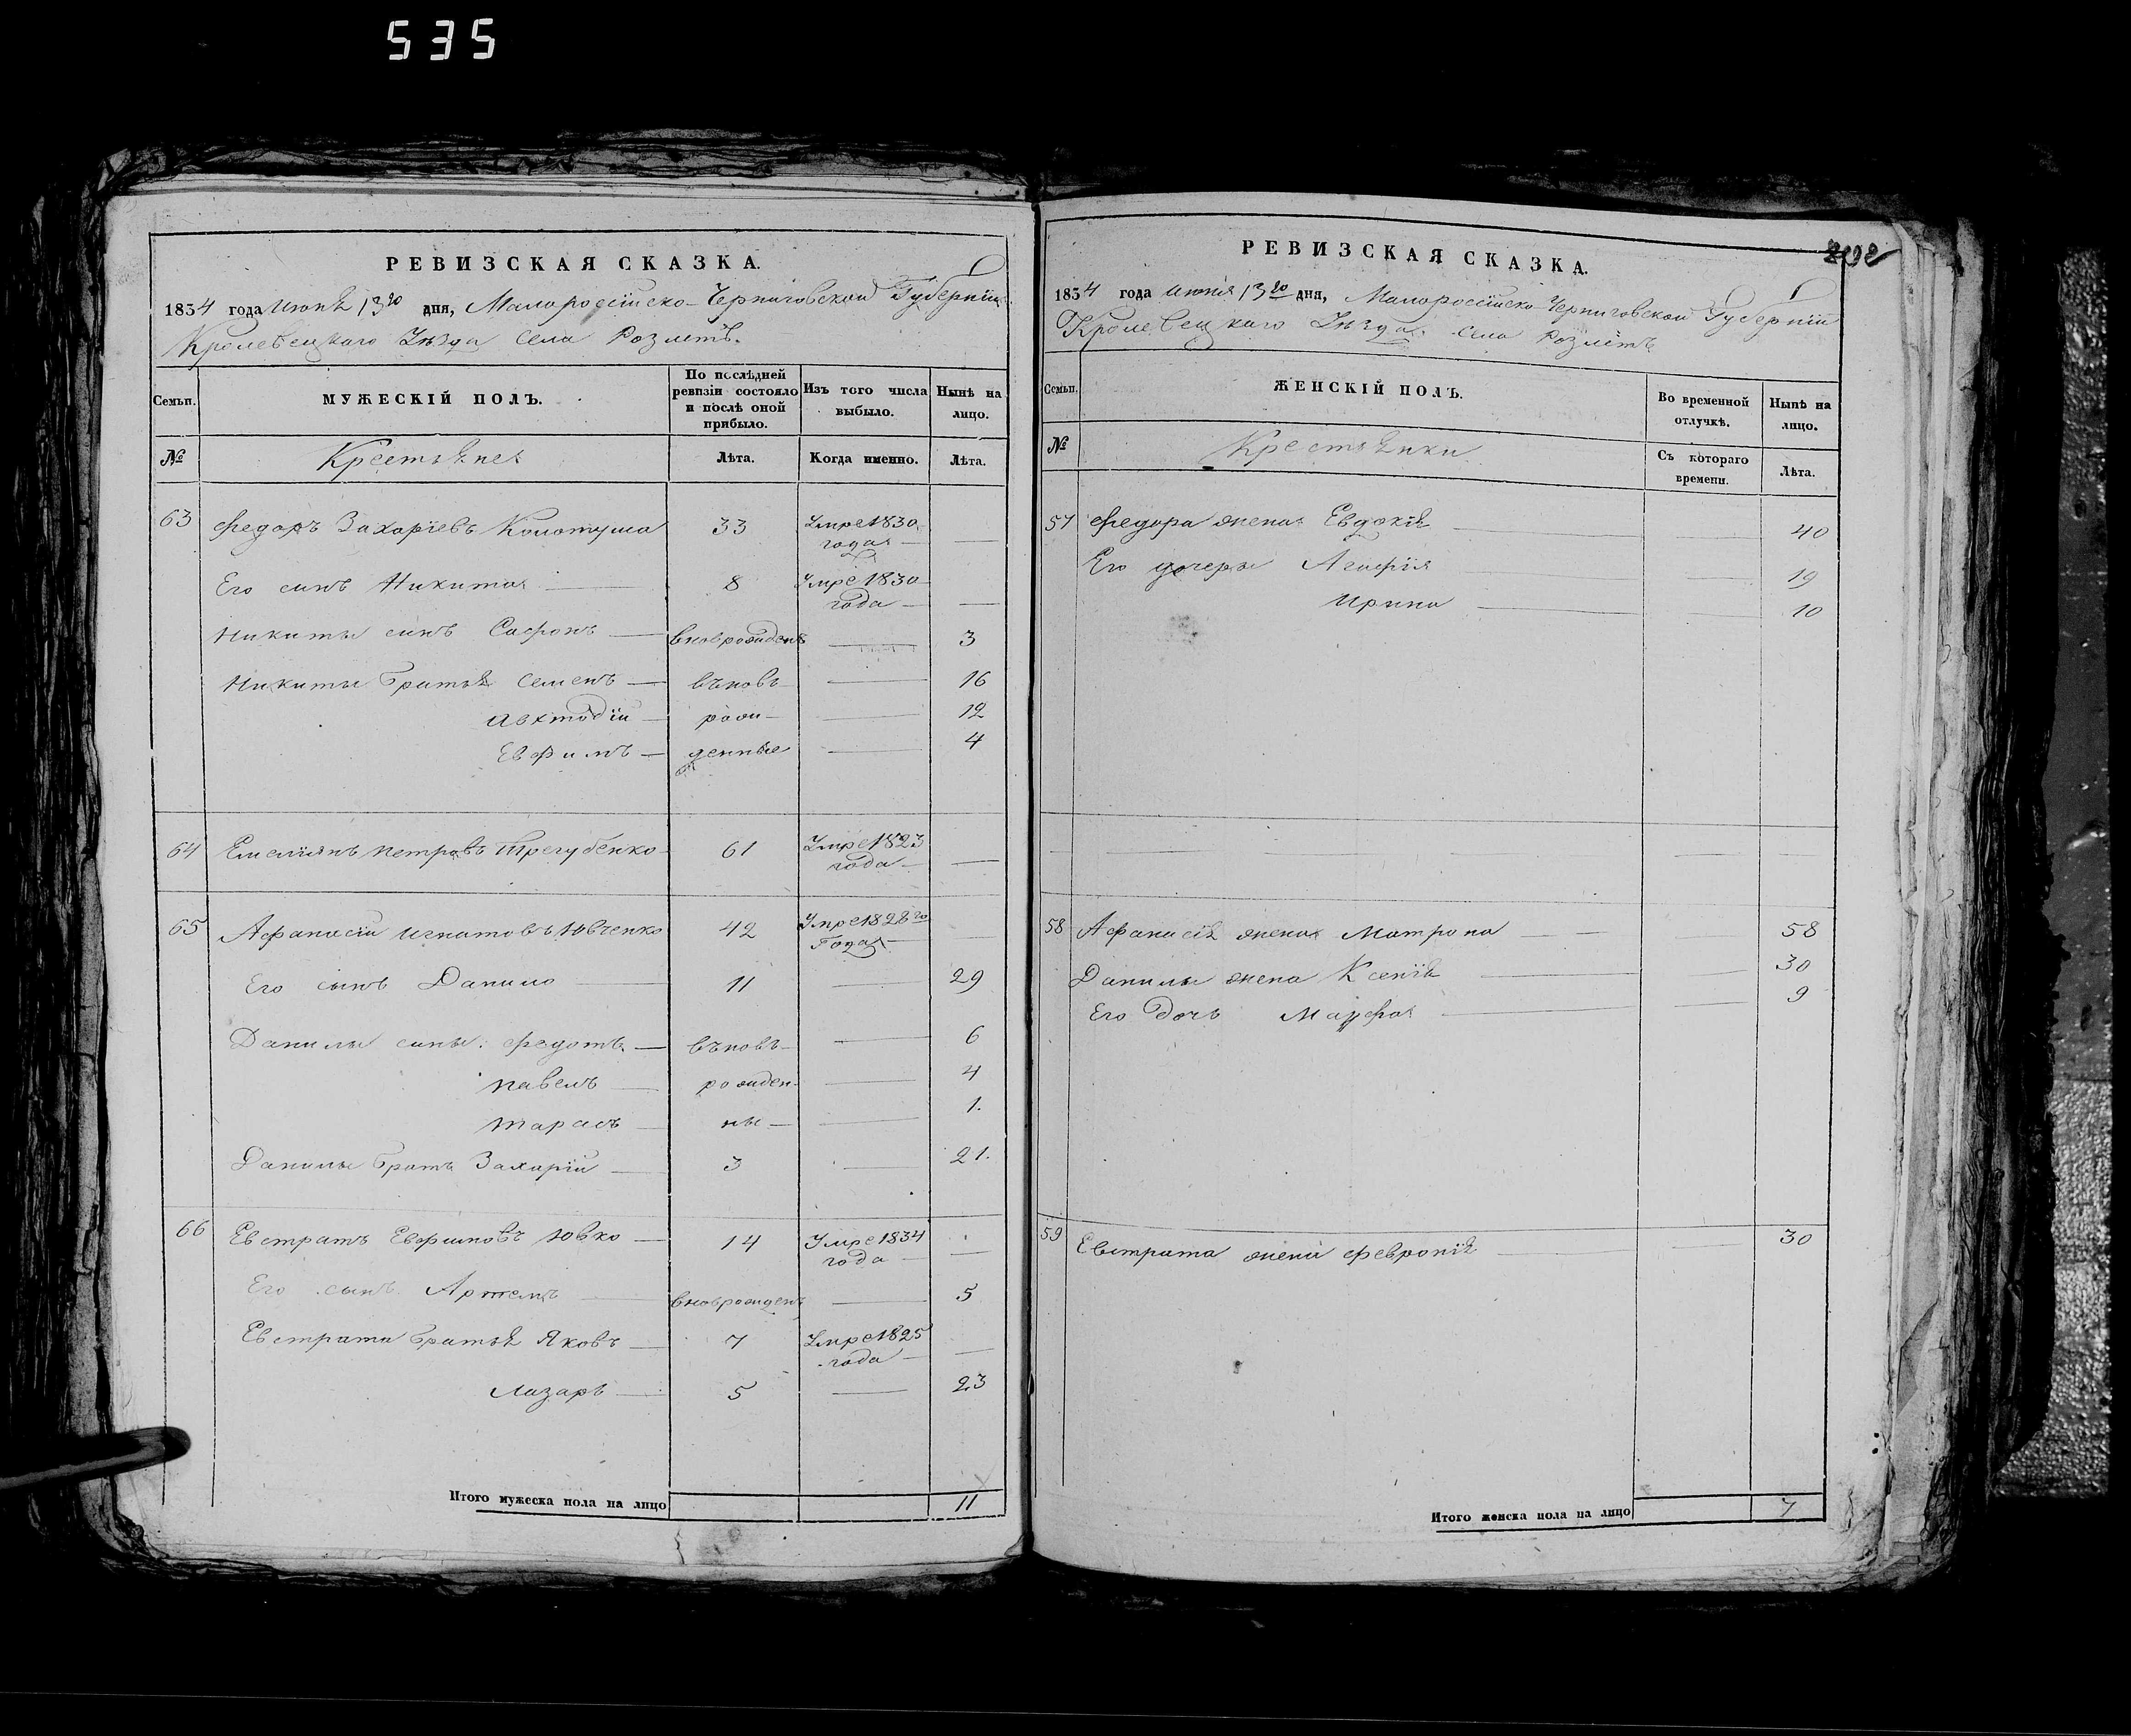 535
РЕВИЗСКАЯ СКАЗКА.
1834 года июня 13го дня, Малоросiйско-Черниговской Губернiи
Кролевецкаго Уѣзда села Розлетъ.
Семьи.
МУЖЕСКIЙ ПОЛЪ.
По послѣдней ревизiи состояло и послѣ оной прибыло.
Изъ того числа выбыло.
Нынѣ на лицо.
№
Крестьяне
Лѣта.
Когда именно.
Лѣта.
63 Федоръ Захарiевъ Колотуша 33 Умре 1830 года —
Его синъ Никита — 8 Умре 1830 года —
Никиты синъ Сафонъ — вновророжденъ — 3
Никиты братья Семенъ — въновь — 16
Авхтодiй — рож — 12
Евфимъ — денные — 4
64 Емелиянъ Петровъ Трегубенко 61 Умре 1823 года —
65 Афанасiй Игнатовъ Ювченко 42 Умре 1828го года —
Его сынъ Данило — 11 — 29
Данилы сины: Федотъ — въновь — 6
Павелъ — рожден — 4
Тарасъ — ны — 1.
Данилы братъ Захарiй — 3 — 21.
66 Евстратъ Евфимовъ Ювко — 14 Умре 1834 года —
Его сынъ Артемъ — вновророжденъ — 5
Евстрата братья Яковъ — 7 Умре 1825 года —
Лазарь — 5 — 23
Итого мужеска пола на лицо 11
РЕВИЗСКАЯ СКАЗКА.
1834 года июня 13го дня, Малоросiйско-Черниговской Губернiи
Кролевецкаго Уѣзда села Розлетъ
Семьи.
ЖЕНСКIЙ ПОЛЪ.
Во временной отлучкѣ.
Нынѣ на лицо.
№
Крестьянки
Съ котораго времени.
Лѣта.
57 Федора жена Евдокiя — — 40
Его дочеры Агафiя — — 19
Ирина — — 10
58 Афанасiя жена Матрона — — 58
Данилы жена Ксенiя — — 30
Его дочь Марфа — — 9
59 Евстрата жена Февронiя — — 30
Итого женска пола на лицо 7